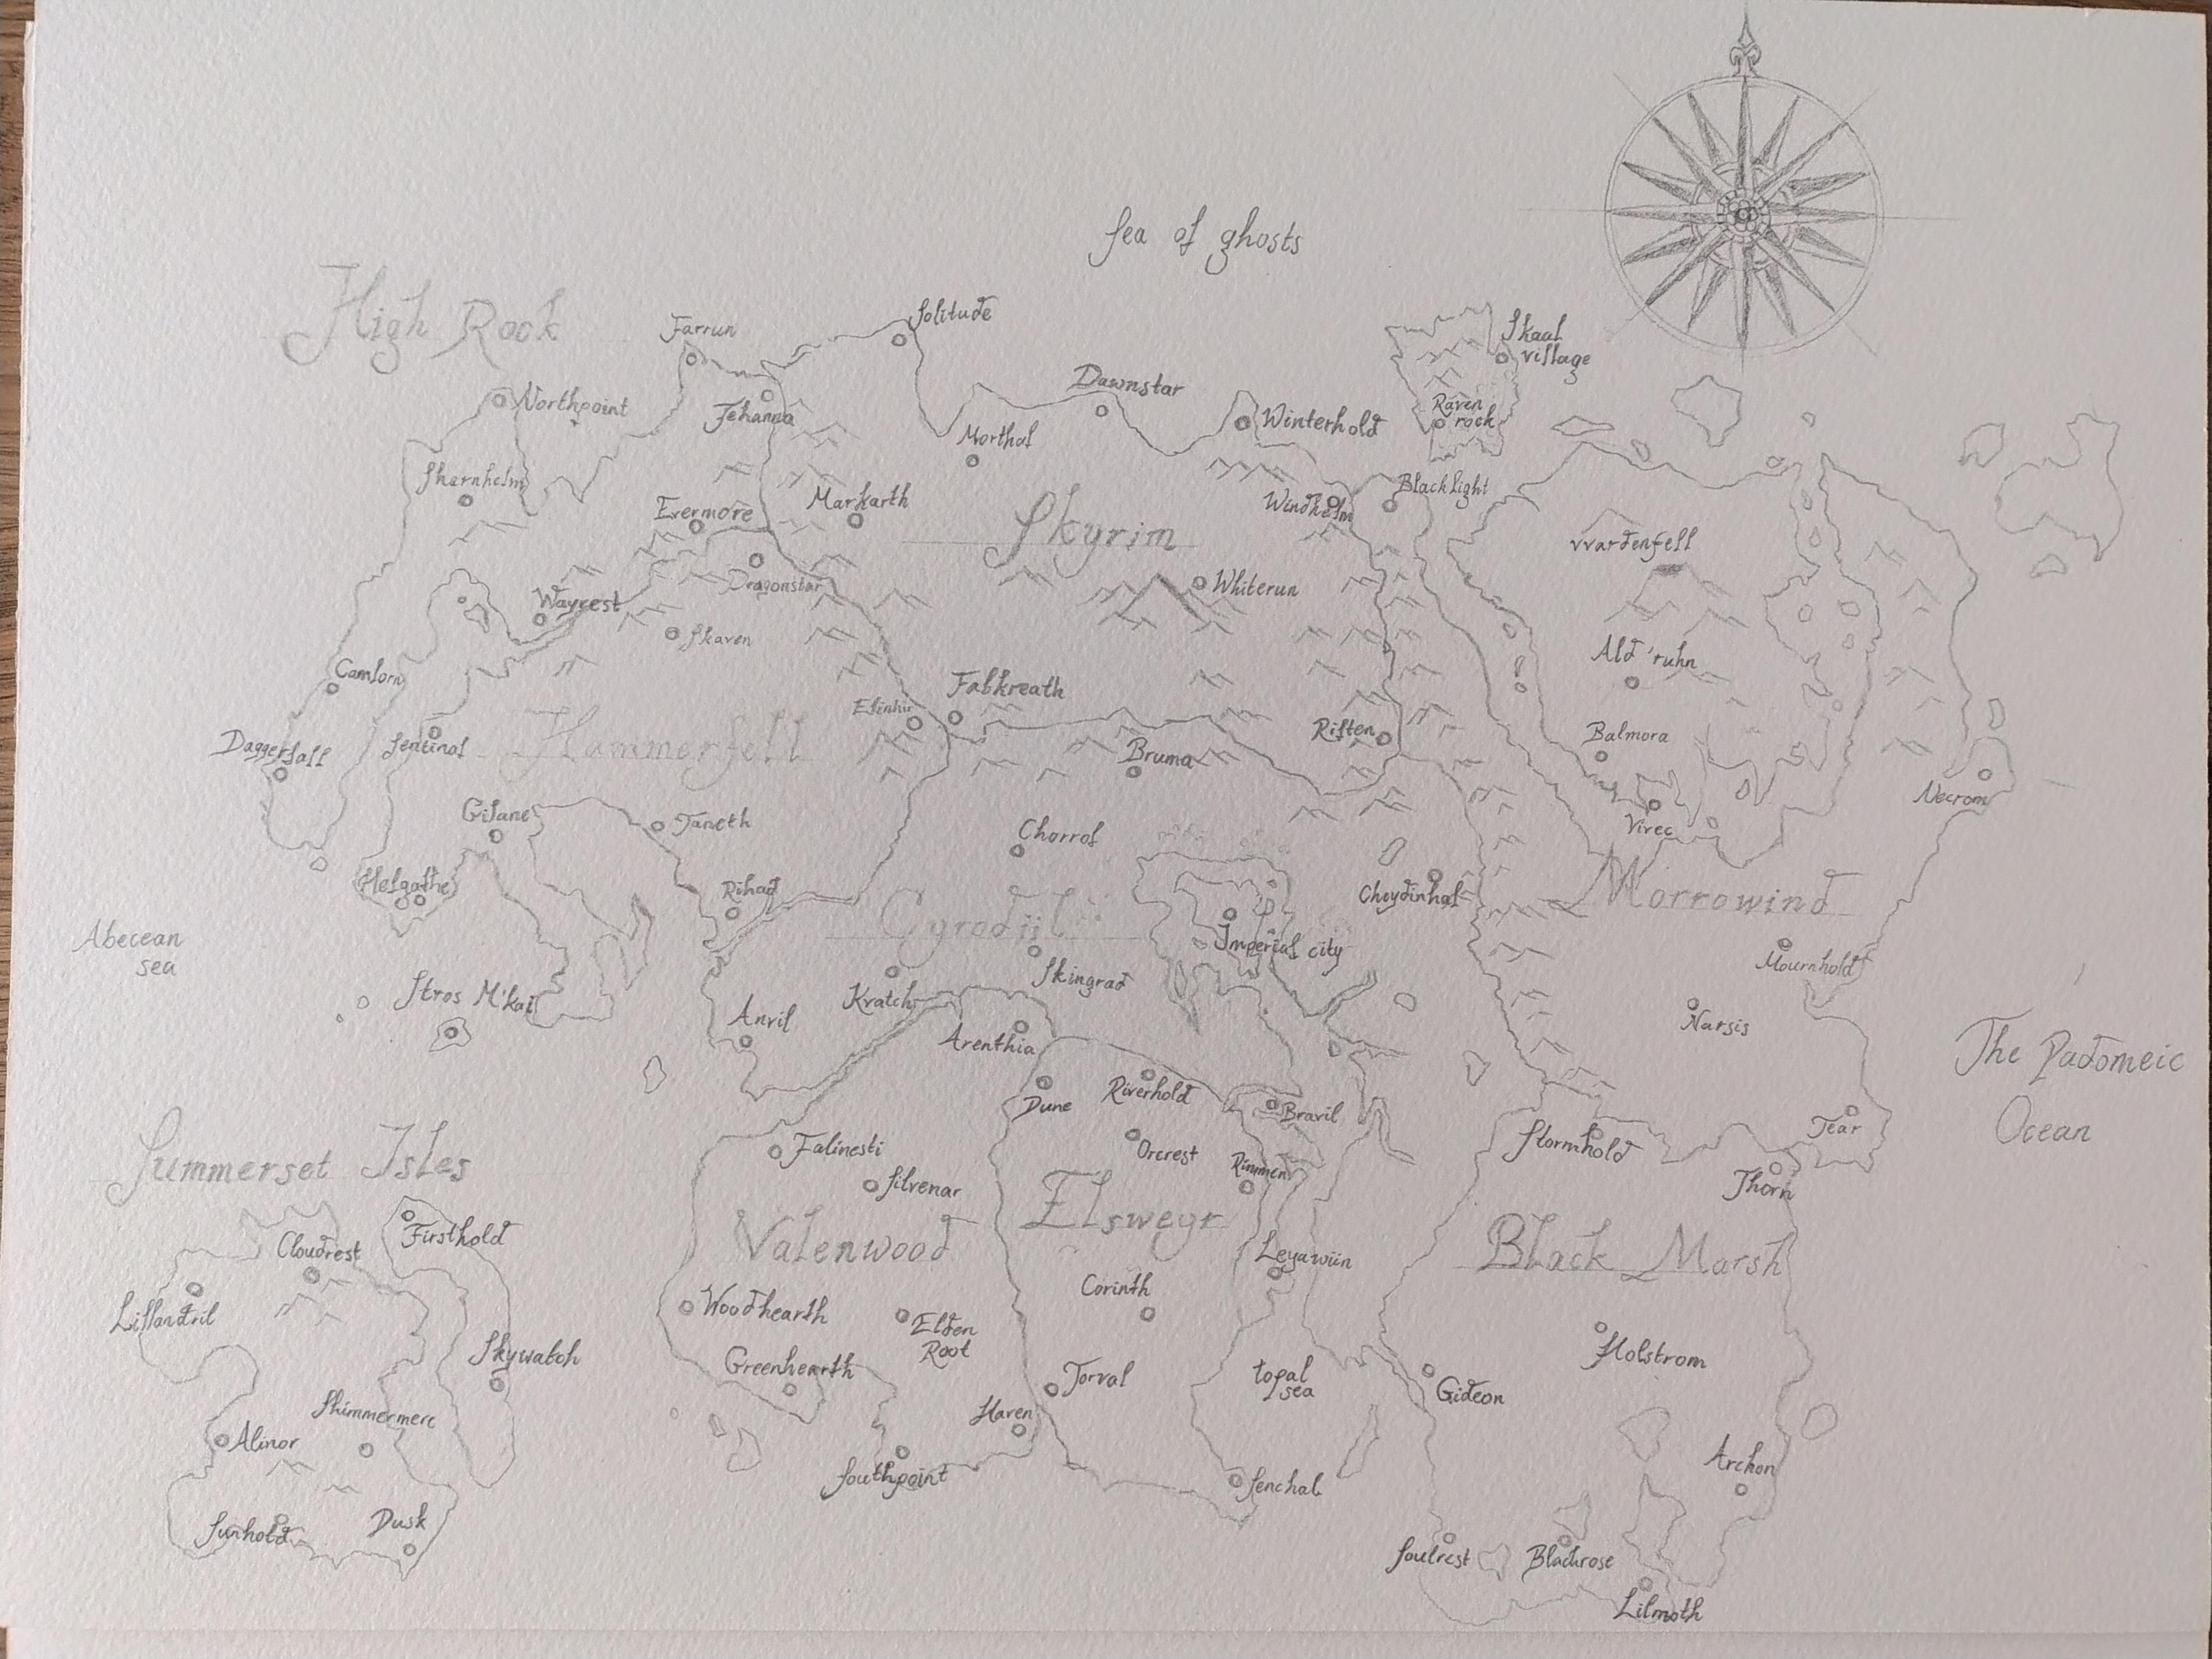 Sea of ghosts
High Rock
Farrun
Solitude
Skaal
village
Northpoint
Jehanna
Dawnstar
Morthal
Winterhold
Raven
rock
Sharnhelm
Evermore
Markarth
Skyrim
Windhelm
Blacklight
Vvardenfell
Dragonstar
Wayrest
Whiterun
Skaven
Ald 'ruhn
Camlorn
Falkreath
Elinhir
Daggerfall
Sentinal
Hammerfell
Bruma
Riften
Balmora
Necrom
Gilane
Taneth
Chorrol
Vivec
Helgathe
Rihad
Cyrodiil
Cheydinhal
Morrowind
Abecean
sea
Imperial city
Mournhold
Stros M'kai
Kvatch
Skingrad
Anvil
Arenthia
Narsis
The Padomeic
Ocean
Dune
Riverhold
Bravil
Tear
Summerset Isles
Falinesti
Orcrest
Rimmen
Stormhold
Thorn
Silvenar
Valenwood
Elsweyr
Black Marsh
Cloudrest
Firsthold
Leyawiin
Lillandril
Woodhearth
Elden
Root
Corinth
Skywatch
Greenhearth
Torval
topal
sea
Gideon
Holstrom
Shimmermere
Alinor
Haven
Southpoint
Senchal
Archon
Sunhold
Dusk
Soulrest
Blackrose
Lilmoth